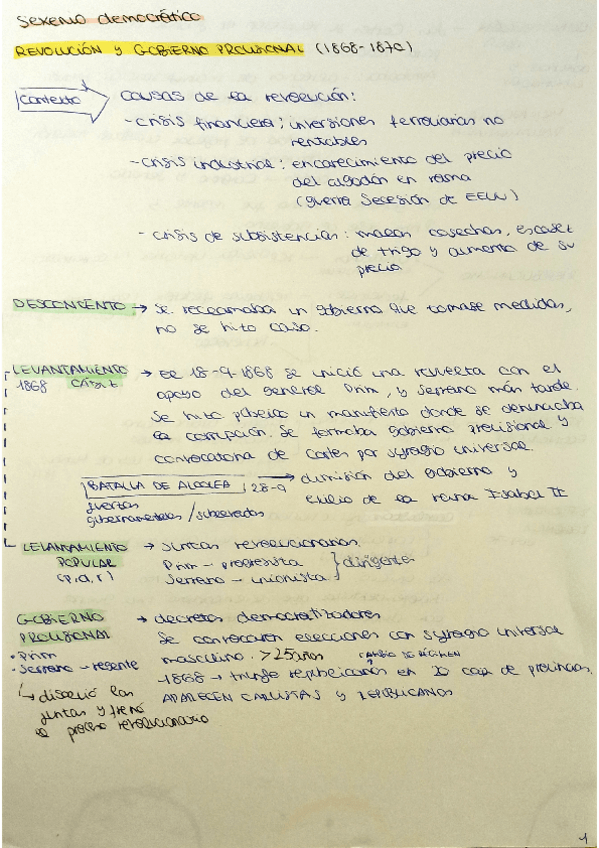 sexenio democrático
REVOLUCIÓN y GOBIERNO PROVISIONAL (1868-1870)
contexto
causas de la revolución:
- crisis financiera: inversiones ferroviarias no
rentables
- crisis industrial: encarecimiento del precio
del algodón en rama
(guerra Secesión de EEUU)
- crisis de subsistencias: malas cosechas, escasez
de trigo y aumento de su
precio
DESCONTENTO → se reclamaba un gobierno que tomase medidas,
no se hizo caso.
LEVANTAMIENTO → el 18-9-1868 se inició una revuelta con el
1868 CÁDIZ
apoyo del general Prim, y Serrano más tarde.
Se hizo público un manifiesto donde se denunciaba
la corrupción. Se formaba gobierno provisional y
convocatoria de Cortes por sufragio universal.
BATALLA DE ALCOLEA 28-9 → dimisión del gobierno y
fuerzas
exilio de la reina Isabel II
gubernamentales / sublevados
LEVANTAMIENTO → Juntas revolucionarias.
POPULAR
Prim - progresista
(p, d, r)
Serrano - unionista } dirigentes
GOBIERNO → decretos democratizadores
PROVISIONAL
Se convocaron elecciones con sufragio universal
• Prim
masculino. >25 años
CAMBIO DE RÉGIMEN
• Serrano - regente
1868 → triunfo republicanos en 20 cap de provincias.
↳ disolvió las
APARECEN CARLISTAS y REPUBLICANOS
juntas y frenó
el proceso revolucionario
1